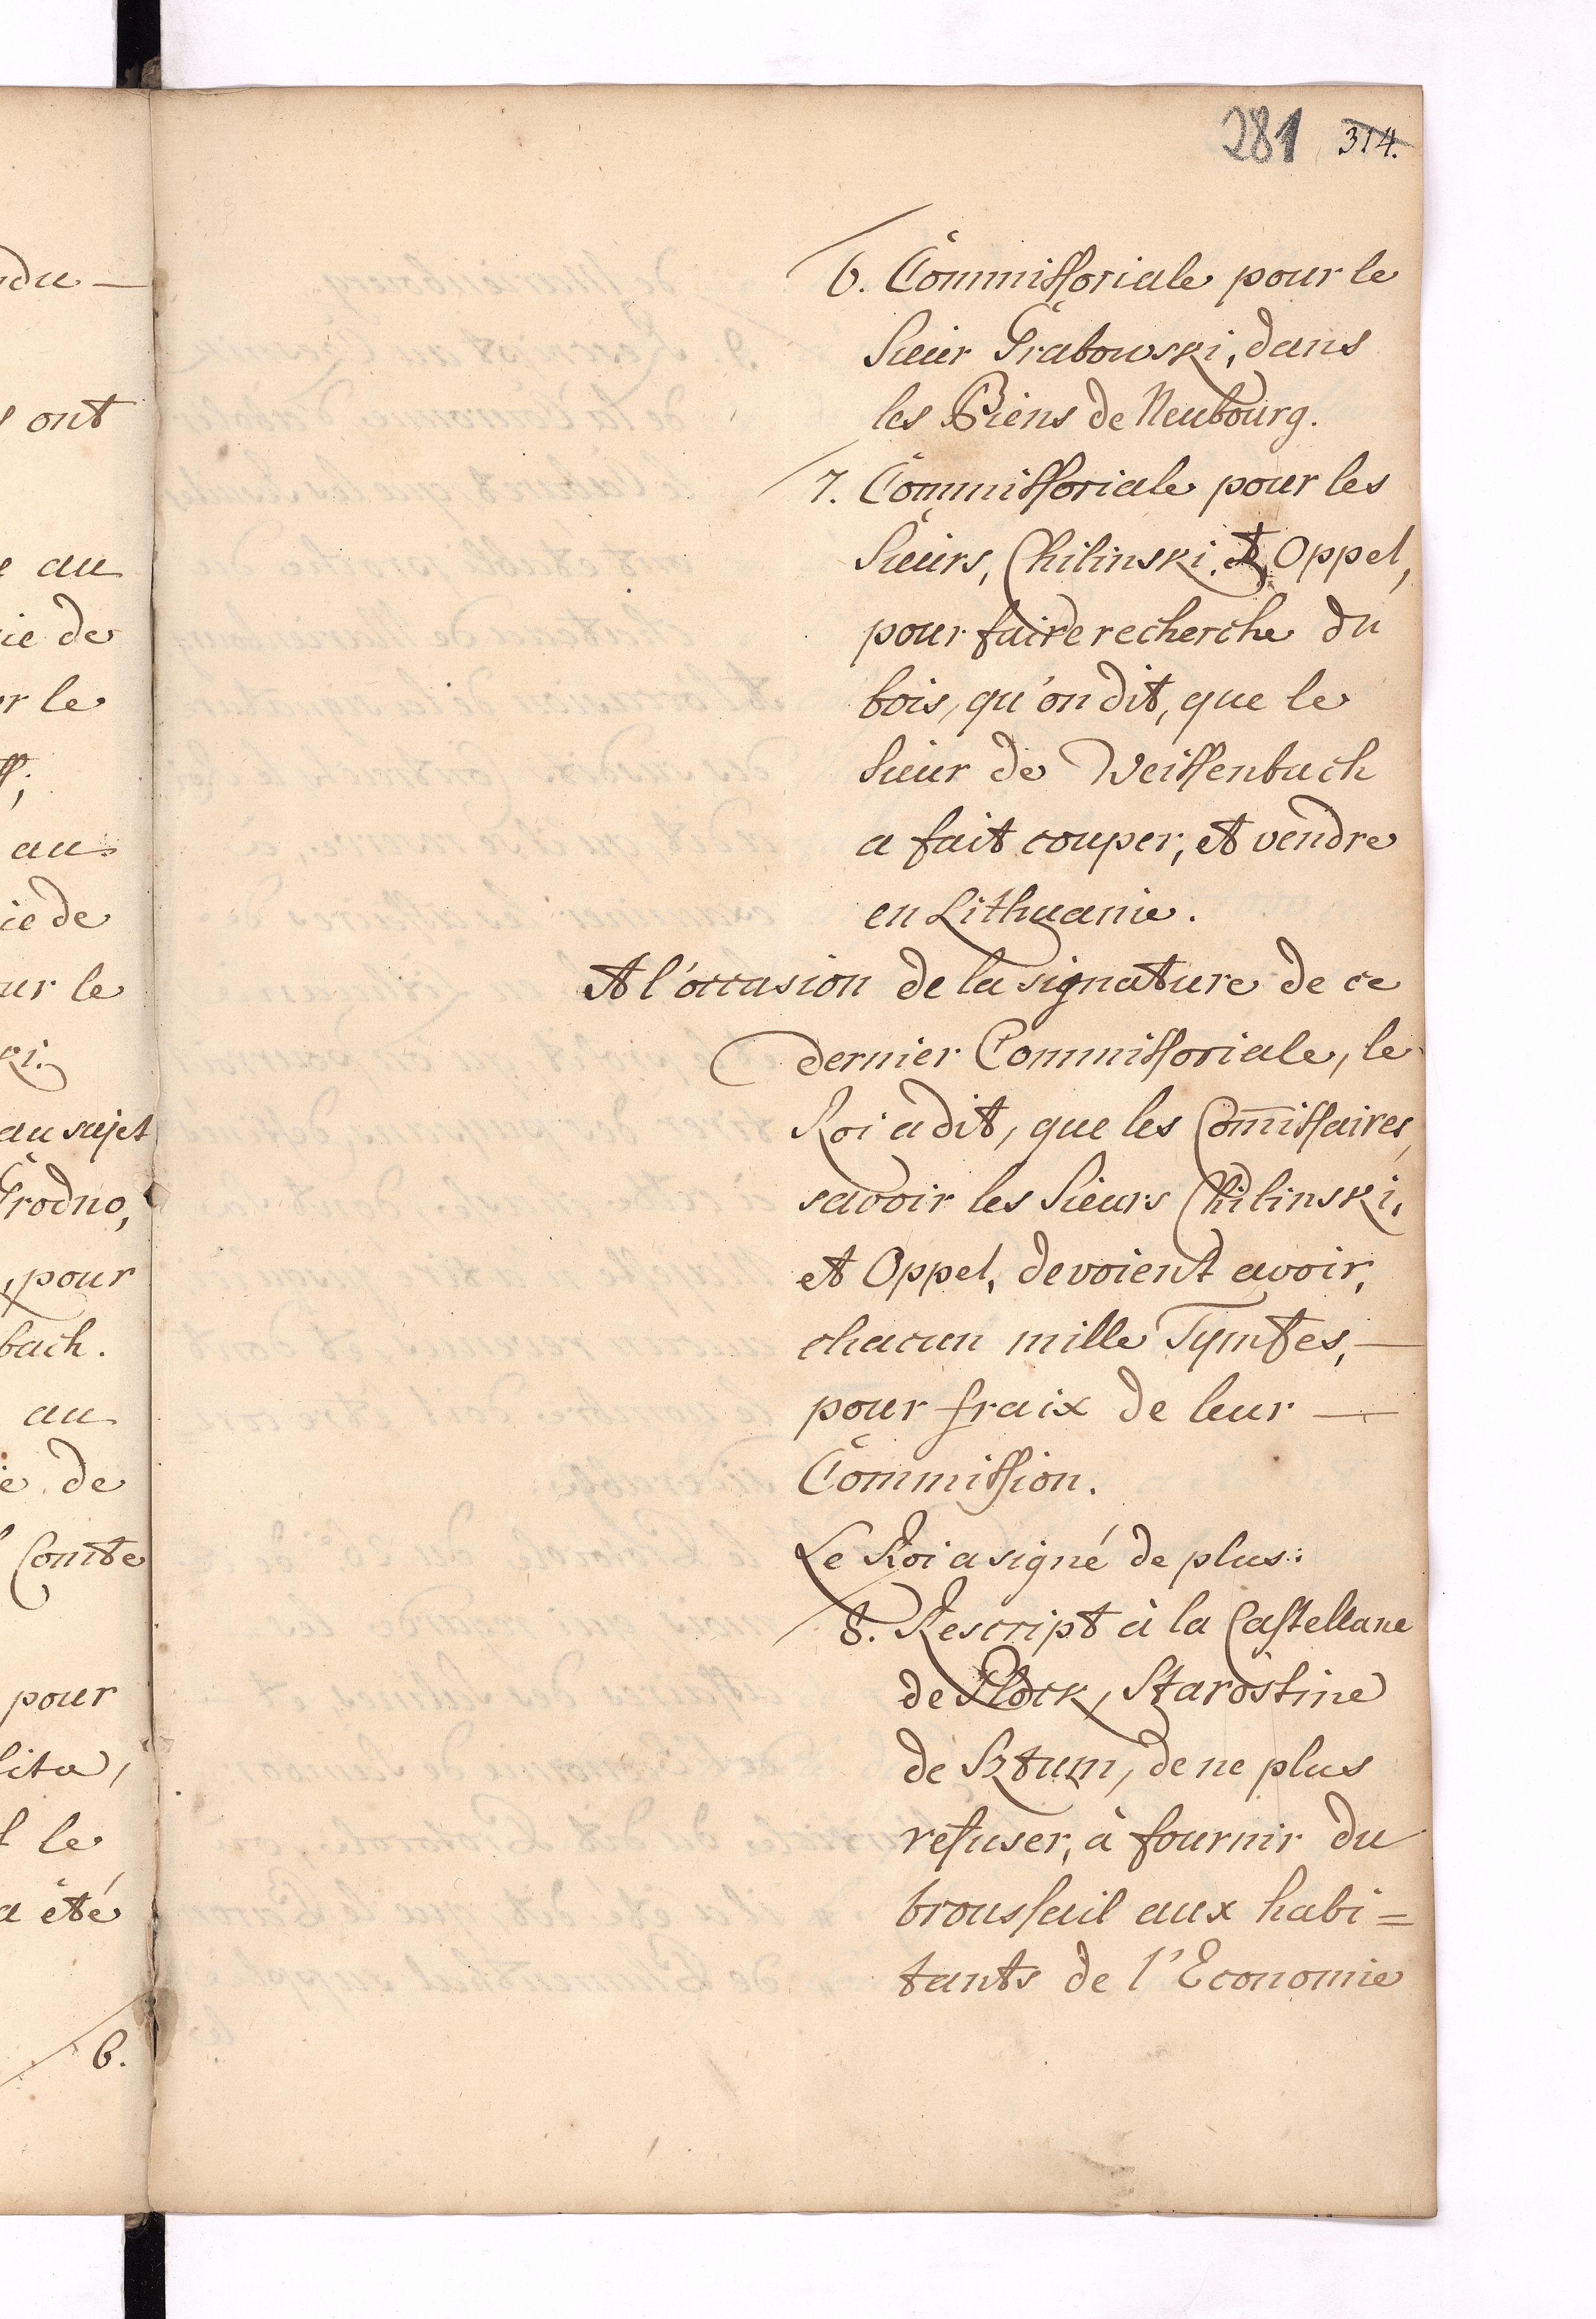 du —
s ont
e au
ie de
r le
ff;
au
ie de
ur le
ki.
au sujet
Grodno,
, pour
bach.
au
e de
Comte
pour
lita,
t le
a été
6.
281 314.
6. Commissoriale pour le
Sieur Grabowski, dans
les Biens de Neubourg.
7. Commissoriale pour les
Sieurs, Chilinski, et Oppel,
pour faire recherche du
bois, qu'on dit, que le
Sieur de Weissenbach
a fait couper, et vendre
en Lithuanie.
A l'occasion de la signature de ce
dernier Commissoriale, le
Roi a dit, que les Com̄issaires,
savoir les Sieurs Chilinski,
et Oppel, devoient avoir,
chacun mille Tymfes, —
pour fraix de leur —
Commission.
Le Roi a signé de plus:
8. Rescript à la Castellane
de Plock, Starostine
de Sztum, de ne plus
refuser, à fournir du
broussail aux habi=
tants de l'Economie